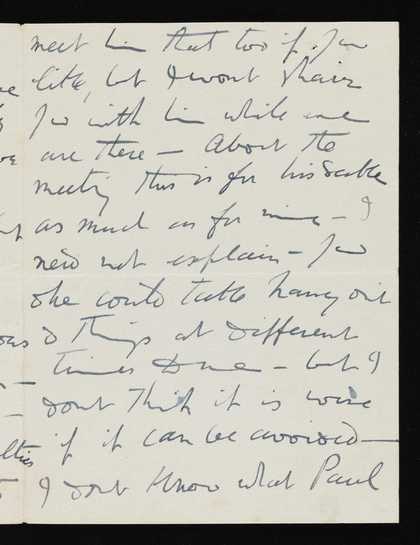 meet him that too if you
like, but I wont share
you with him while we
are there — About the
meeting this is for his sake
as much as for mine — I
need not explain — you
she could take
& things at different
times &        — but I
dont think it is wise
if it can be avoided —
I dont know what Paul